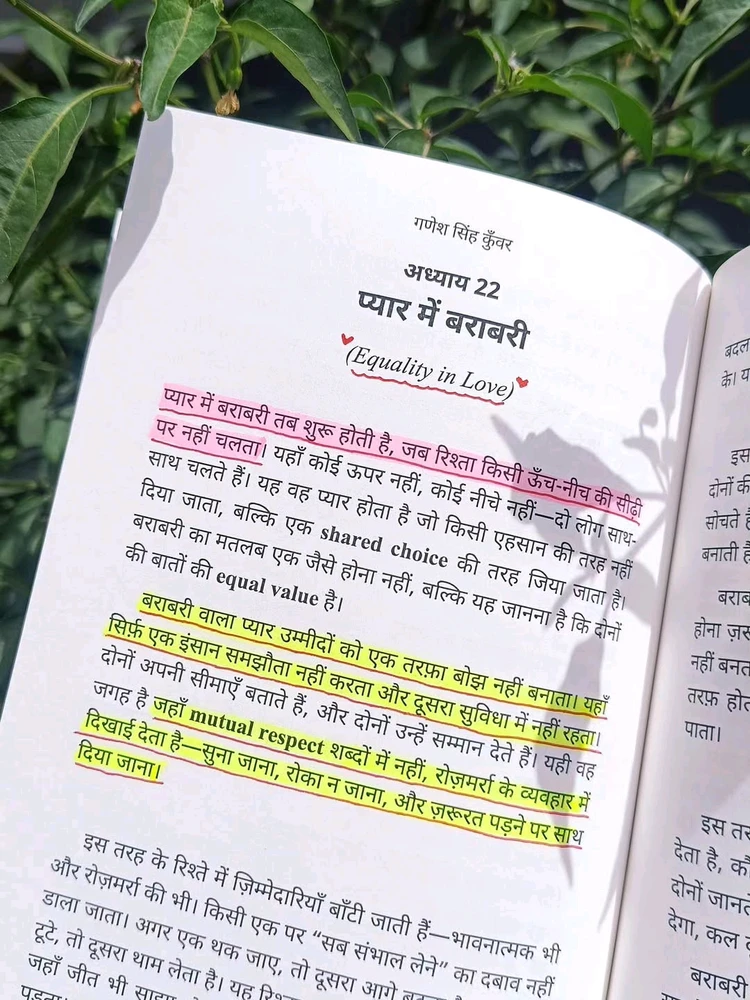 गणेश सिंह कुँवर
अध्याय 22
प्यार में बराबरी
(Equality in Love)
प्यार में बराबरी तब शुरू होती है, जब रिश्ता किसी ऊँच-नीच की सीढ़ी
पर नहीं चलता। यहाँ कोई ऊपर नहीं, कोई नीचे नहीं—दो लोग साथ-
साथ चलते हैं। यह वह प्यार होता है जो किसी एहसान की तरह नहीं
दिया जाता, बल्कि एक shared choice की तरह जिया जाता है।
बराबरी का मतलब एक जैसे होना नहीं, बल्कि यह जानना है कि दोनों
की बातों की equal value है।
बराबरी वाला प्यार उम्मीदों को एक तरफ़ा बोझ नहीं बनाता। यहाँ
सिर्फ़ एक इंसान समझौता नहीं करता और दूसरा सुविधा में नहीं रहता।
दोनों अपनी सीमाएँ बताते हैं, और दोनों उन्हें सम्मान देते हैं। यही वह
जगह है जहाँ mutual respect शब्दों में नहीं, रोज़मर्रा के व्यवहार में
दिखाई देता है—सुना जाना, रोका न जाना, और ज़रूरत पड़ने पर साथ
दिया जाना।
इस तरह के रिश्ते में ज़िम्मेदारियाँ बाँटी जाती हैं—भावनात्मक भी
और रोज़मर्रा की भी। किसी एक पर “सब संभाल लेने” का दबाव नहीं
डाला जाता। अगर एक थक जाए, तो दूसरा आगे
टूटे, तो दूसरा थाम लेता है। यह
जहाँ जीत भी
बदल
के। य
इस
दोनों की
सोचते है
बनाती है
बराब
होना ज़रू
नहीं बनत
तरफ़ होत
पाता।
इस तर
देता है, कौ
दोनों जानत
देगा, कल
बराबरी